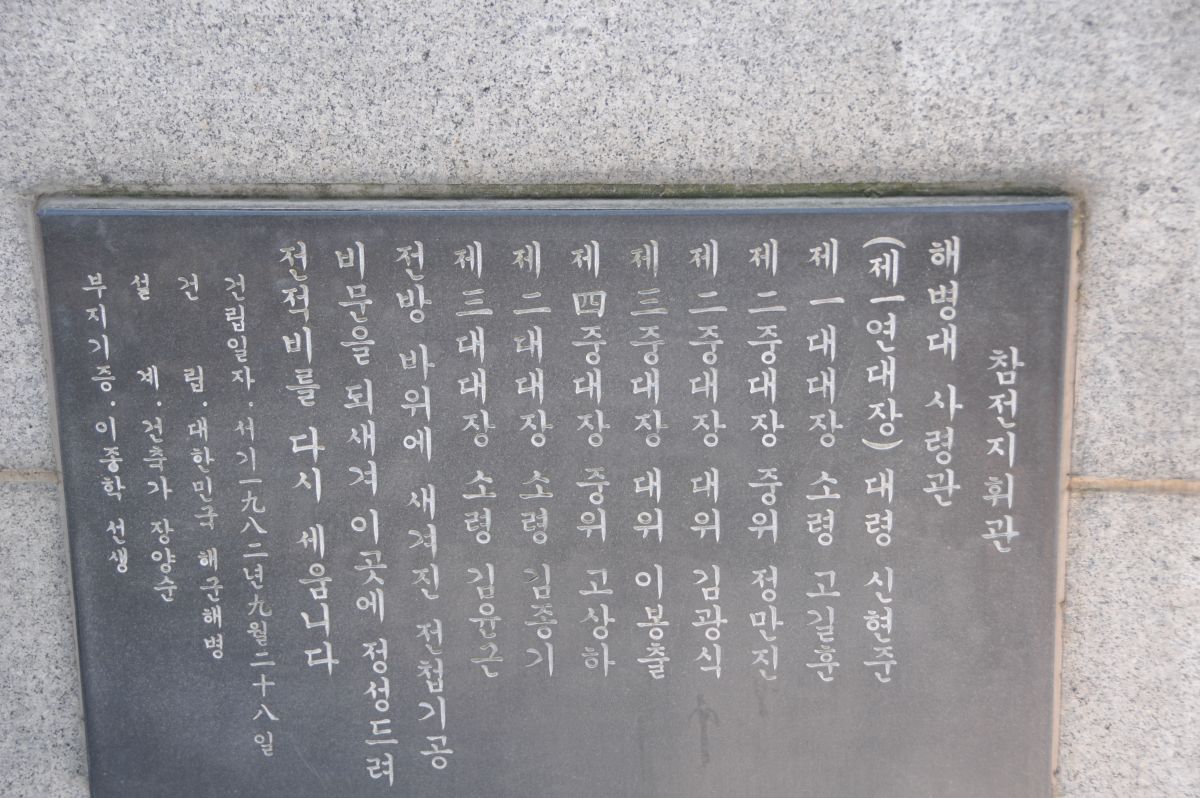 참전지휘관
해병대 사령관
(제一연대장) 대령 신현준
제一대대장 소령 고길훈
제二중대장 중위 정만진
제二중대장 대위 김광식
제三중대장 대위 이봉출
제四중대장 중위 고상하
제二대대장 소령 김종기
제三대대장 소령 김윤근
전방 바위에 새겨진 전첩기공
비문을 되새겨 이곳에 정성드려
전적비를 다시 세웁니다
건립일자·서기一九八二년九월二十八일
건 립·대한민국 해군해병
설 계·건축가 장양순
부지기증·이종학 선생